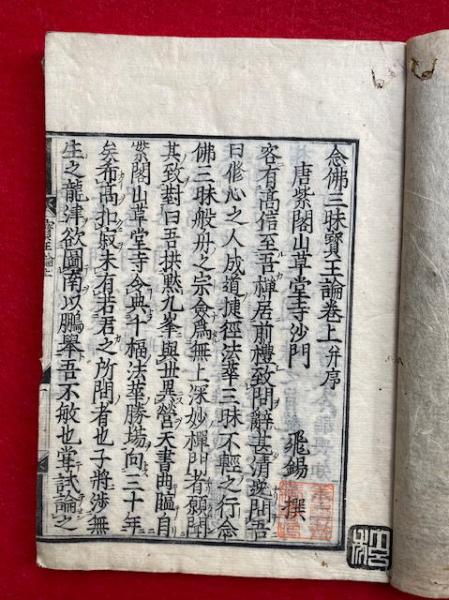 念佛三昧寶王論卷上并序
唐紫閣山草堂寺沙門 飛錫 撰
客有高信至吾禪居前禮致問辭甚清逆問吾
曰修心之人成道捷徑法華三昧不輕之行念
佛三昧般舟之宗僉爲無上深妙禪門者願聞
其致對曰吾拱默九峯與世異營天書曲臨自
紫閣山草堂寺令典千福法華勝場向三十年
矣希高扣寂未有若君之所問者也子將涉無
生之龍津欲圖南以鵬舉吾不敏也嘗試論之
寶王論上